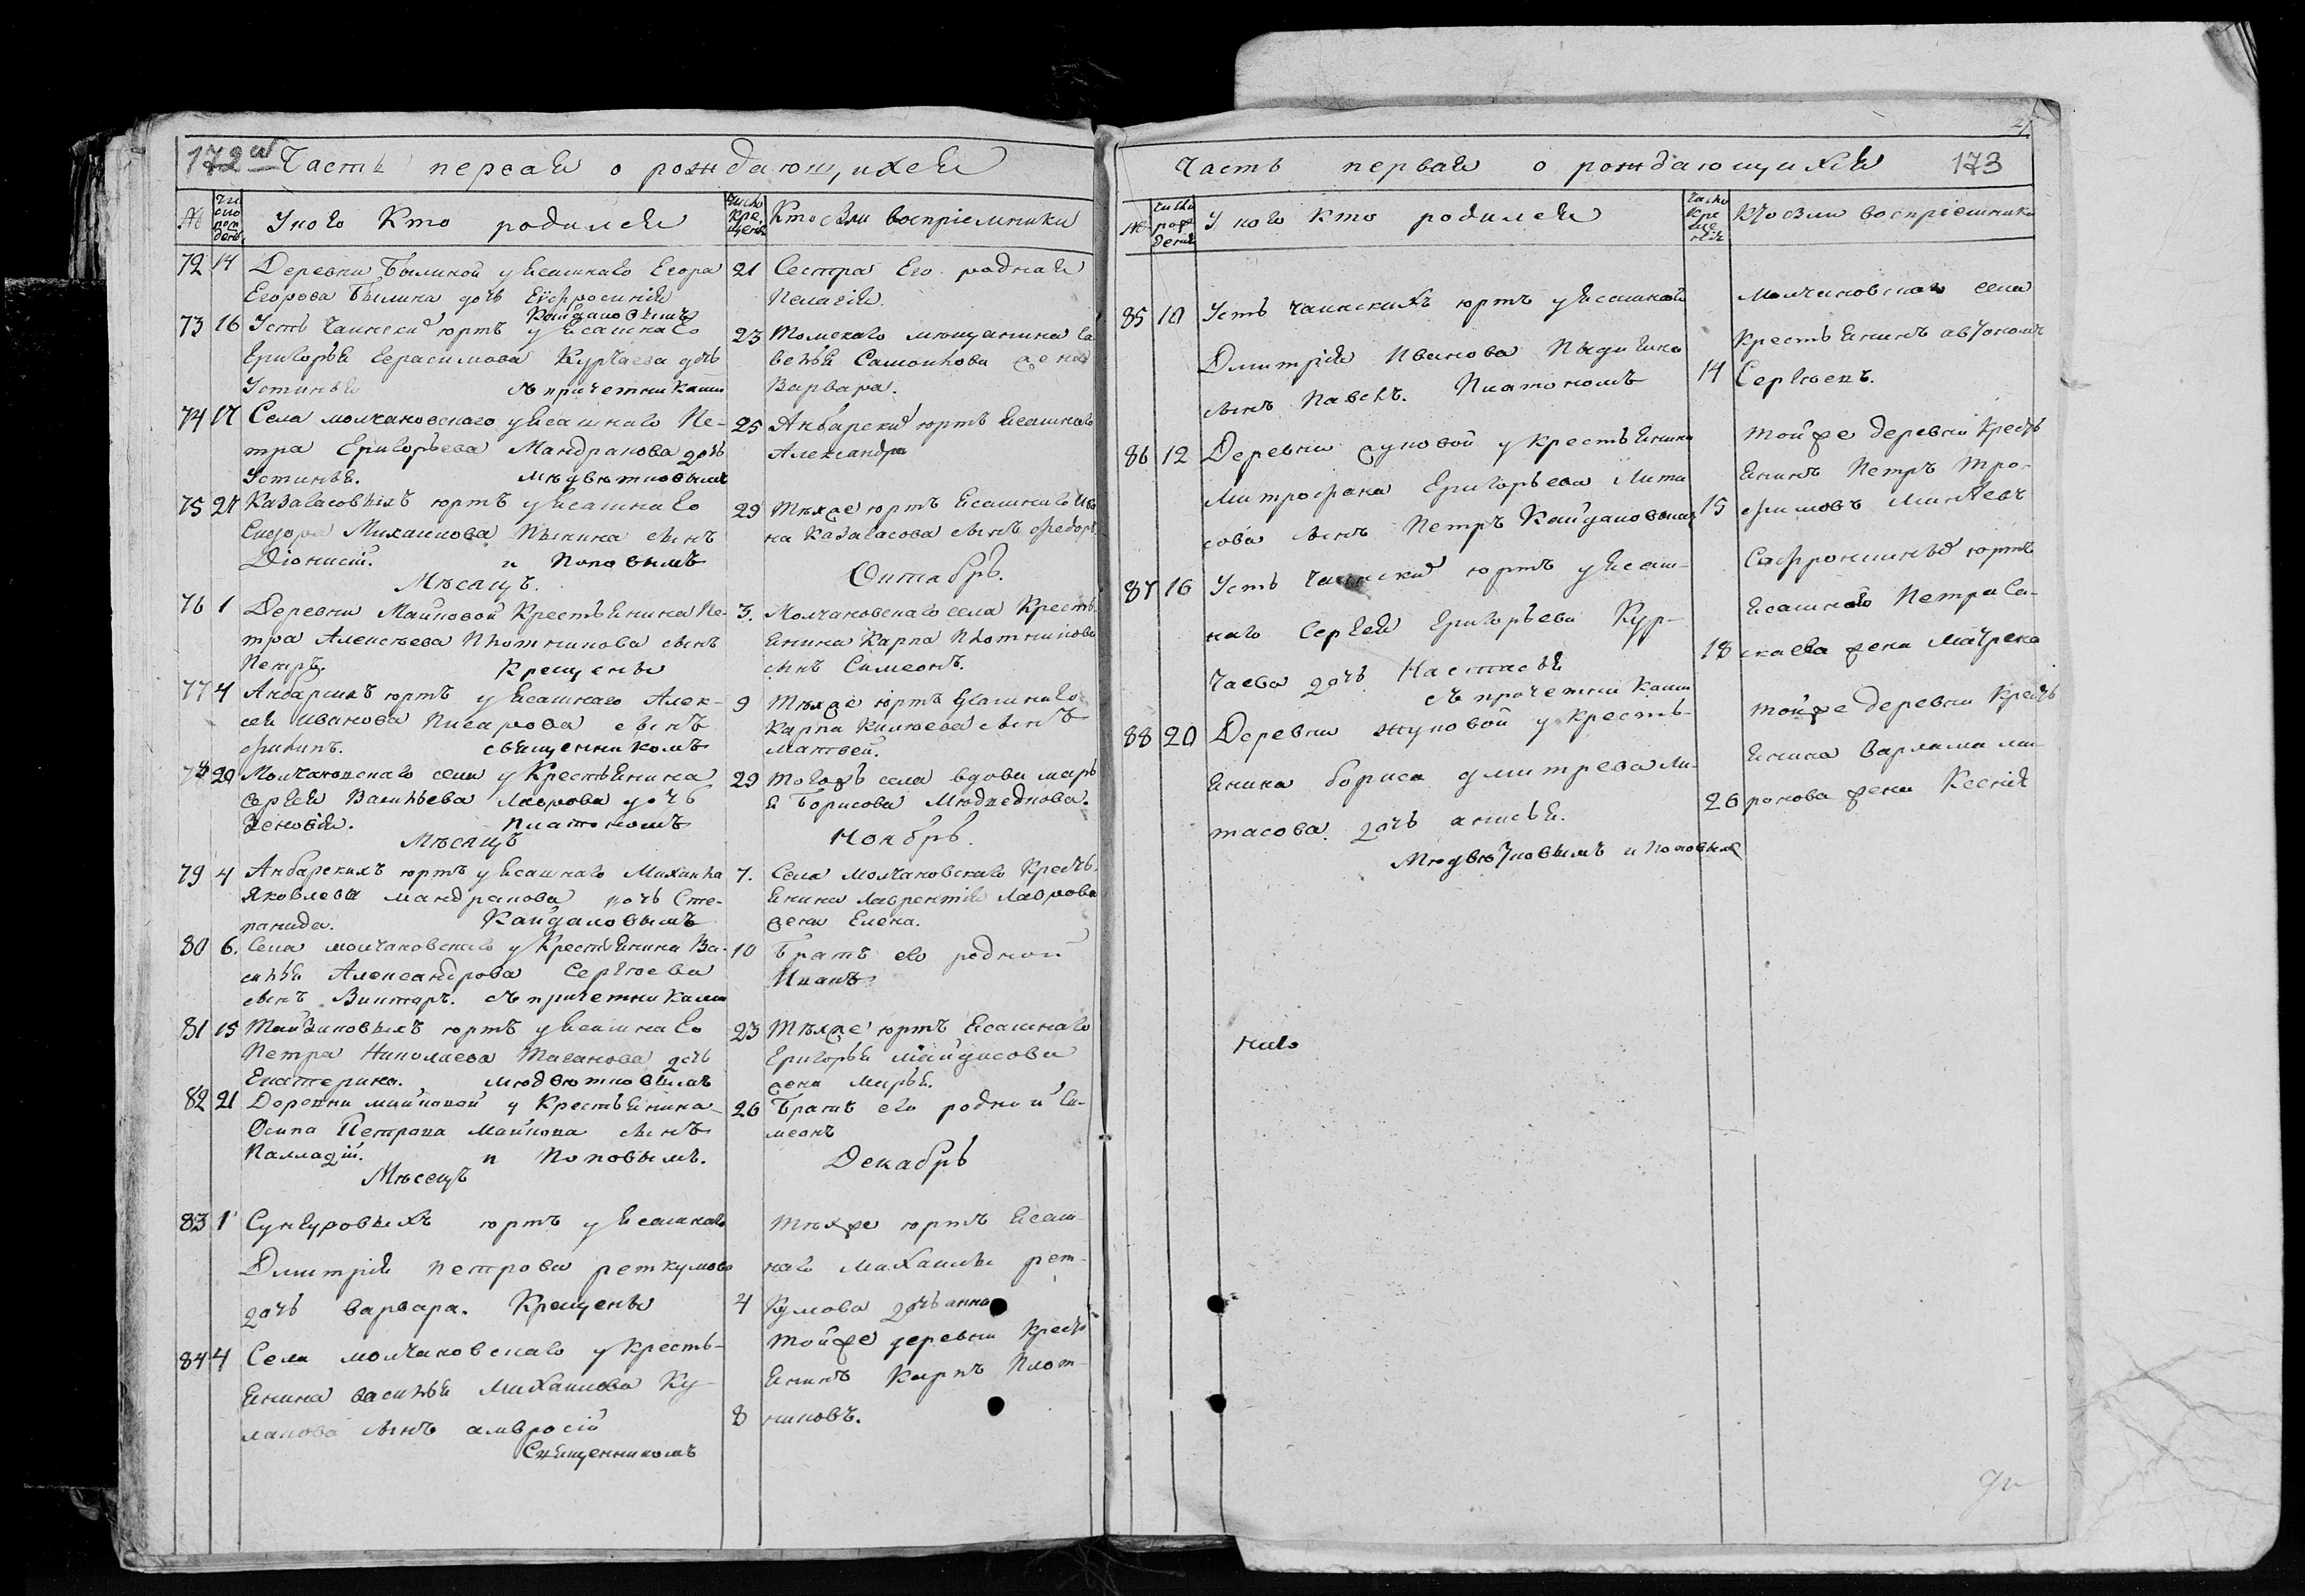 172 Часть первая о рождающихся
№
Чи
сло
рож
день
У кого Кто родился
Число
кре,
щень
Кто были воспріемники
72 14 Деревни Былиной у Ясашнаго Егора
Егорова Былина дочь Еѵфросинія
Кайдаловымъ
21 Сестра Его родная
Пелагія.
73 16 Усть Чаинскихъ юртъ у Ясашнаго
Григорья Герасимова Курчаева дочь
Устинья съ причетниками
23 Томскаго мѣщанина Са
велья Самойлова жена
Варвара.
74 17 Села молчановскаго у Ясашнаго Пе-
тра Григорьева Мандракова дочь
Устинья. Мѣдвѣтновымъ
25 Анбарскихъ юртъ Ясашнаго
Александра
75 27 Казагасовыхъ юртъ у Ясашнаго
Сидора Михаилова Пыкина сынъ
Діонисій. и Поповымъ
29 Тѣхже юртъ Ясашнаго Ива
на Казагасова сынъ Федоръ
Мѣсяцъ. Октябрь.
76 1 Деревни Майковой Крестьянина Пе-
тра Алексѣева Плотникова сынъ
Петръ. Крещены
3. Молчановскаго села Кресть
янина Карпа Плотникова
сынъ Симеонъ.
77 4 Анбарскихъ юртъ у Ясашнаго Алек-
сея Иванова Писарова сынъ
Филипъ. священникомъ
9 Тѣхже юртъ Ясашнаго
Карпа Килѣева сынъ
Матвей.
78 20 Молчановскаго села у Крестьянина
Сергея Васильева Лаврова дочь
Зеновія. Платономъ
29 Тогожъ села вдова марь
я Борисова Мюдведкова.
Мѣсяцъ Ноябрь.
79 4 Анбарскихъ юртъ у Ясашнаго Михаила
Яковлева мандракова дочь Сте-
панида. Кайдаловымъ
7. Села Молчановскаго Кресть
янина Лаврентія Лаврова
жена Елена.
80 6. Села молчановскаго у Крестьянина Ва-
силья Александрова Сергѣева
сынъ Викторъ. съ причетниками
10 Братъ его родной
Иванъ
81 15 Тайзаковыхъ юртъ у Ясашнаго
Петра Николаева Таганова дочь
Екатерина. Мюдвютновымъ
23 Тѣхже юртъ Ясашнаго
Григорья Майдасова
жена Марья.
82 21 Деревни майковой у Крестьянина
Осипа Петрова Майкова сынъ
Палладій. и Поповымъ.
26 Братъ его родной Си-
меонъ
Мѣсецъ Декабрь
83 1 Сунгуровыхъ юртъ у Ясашнаго
Дмитрія Петрова реткумова
дочь Варвара. Крещены
Тѣхже юртъ Ясаш-
наго Михаила рет-
4 Кумова дочь анна
84 4 Села молчановскаго у Кресть-
янина василья Михаилова Ку-
лакова сынъ амвросій
Священникомъ
Тойже деревни Кресть
янинъ Карпъ Плот-
8 никовъ.
Часть первая о рождающихся 173
№
Число
рож
денія
У кого кто родился
Число
Кре
ще
нія
Кто были воспріемники
85 10 Усть Чаинскихъ юртъ у Ясашнаго
Дмитрія Иванова Пыдикина
сынъ Павелъ. Платономъ
Молчановскаго села
Крестьянинъ автономъ
14 Сергѣевъ.
86 12 Деревни жуковой у крестьянина
Митрофана Григорьева Лита
сова сынъ Петръ Кайдаловымъ
Тойже деревни Кресть
янинъ Петръ Тро-
15 фимовъ Минѣевъ
87 16 Усть Чаинскихъ юртъ у Ясаш-
наго Сергея Григорьева Кур-
чаева дочь Настасья
съ причетниками
Сафронскихъ юртъ
Ясашнаго Петра Са-
18 скаева жена Матрена
88 20 Деревни жуковой у Кресть-
янина бориса дмитрева Ли-
тасова дочь анисья.
Мюдвютновымъ и Поповымъ
Тойже деревни Кресть
янина Варлама ми-
26 ронова жена Ксенія
наго